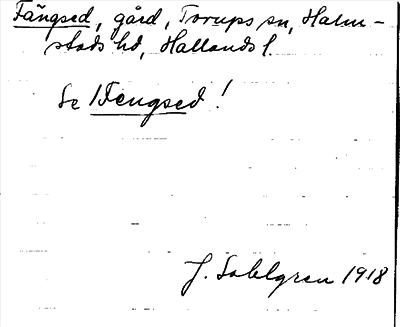 Fängsed, gård, Torups sn, Halm-
stads hd, Hallands l.
Se 1 Fengsed!
J. Sahlgren 1918